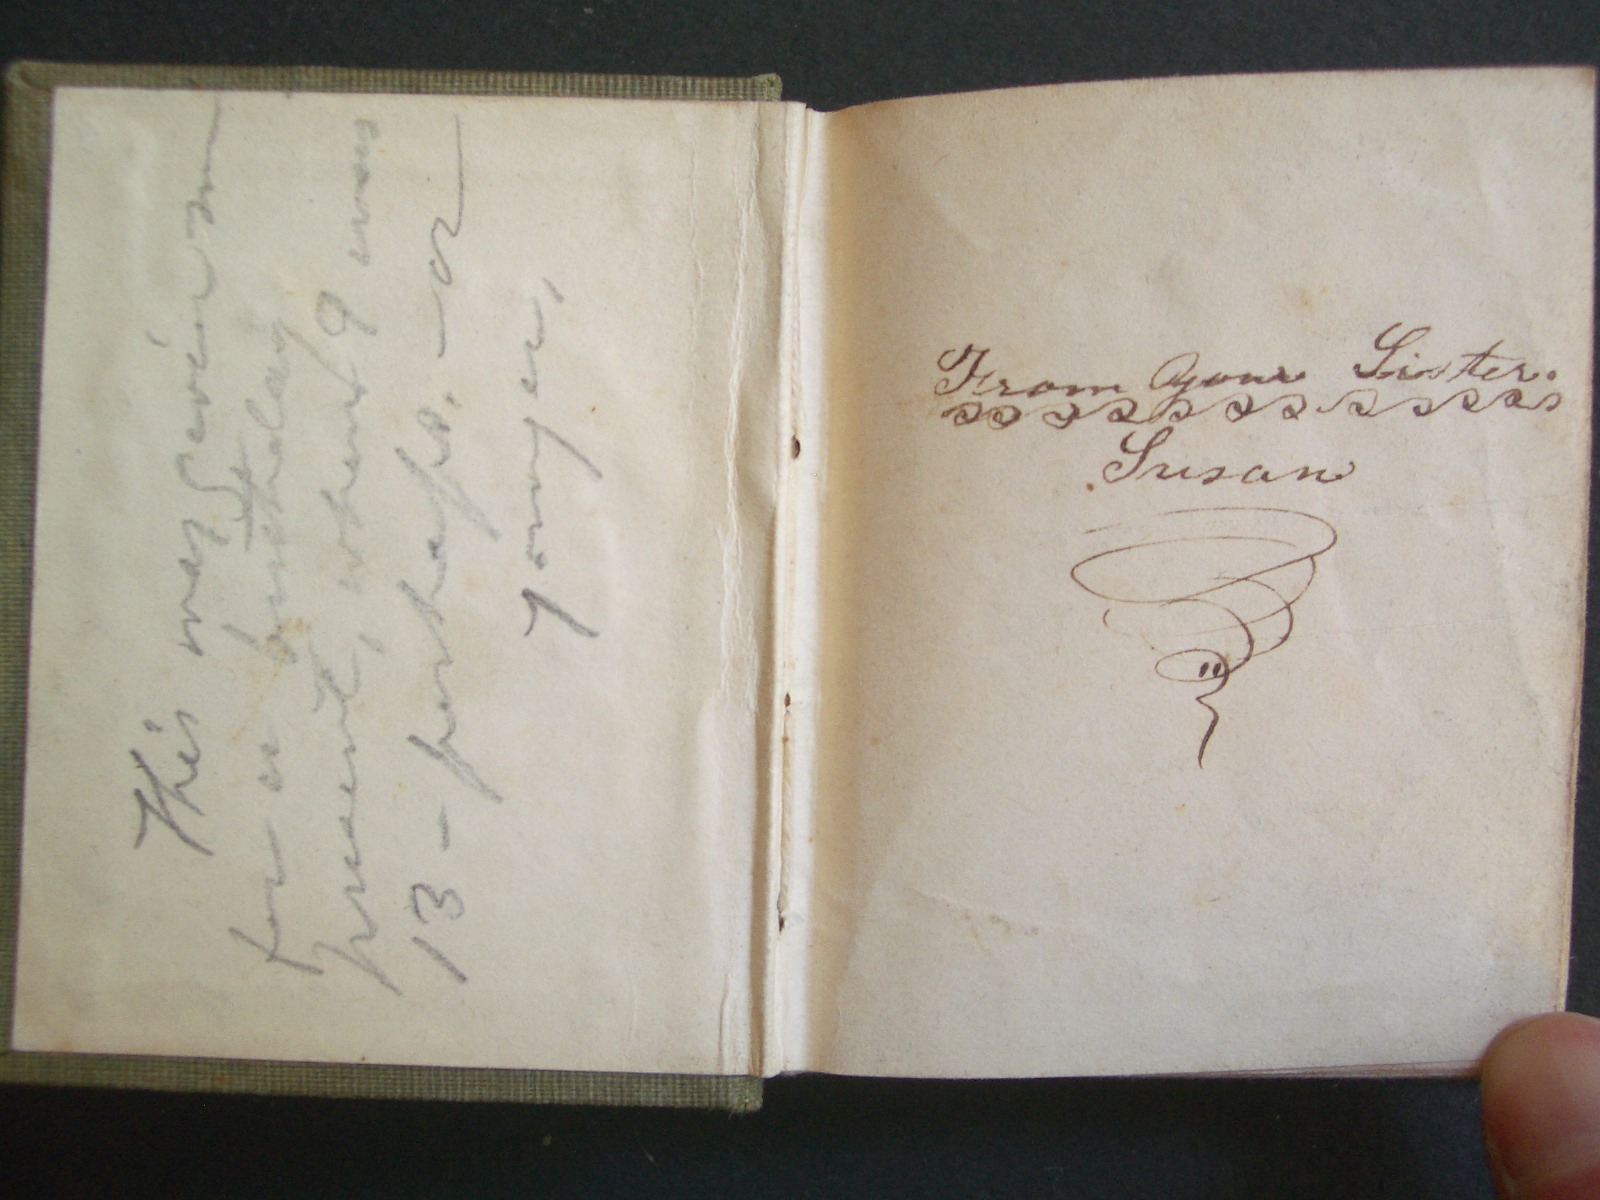 This was given me
for a birthday
present, when I was
13 - perhaps, - or
younger,
From your Sister.
Susan